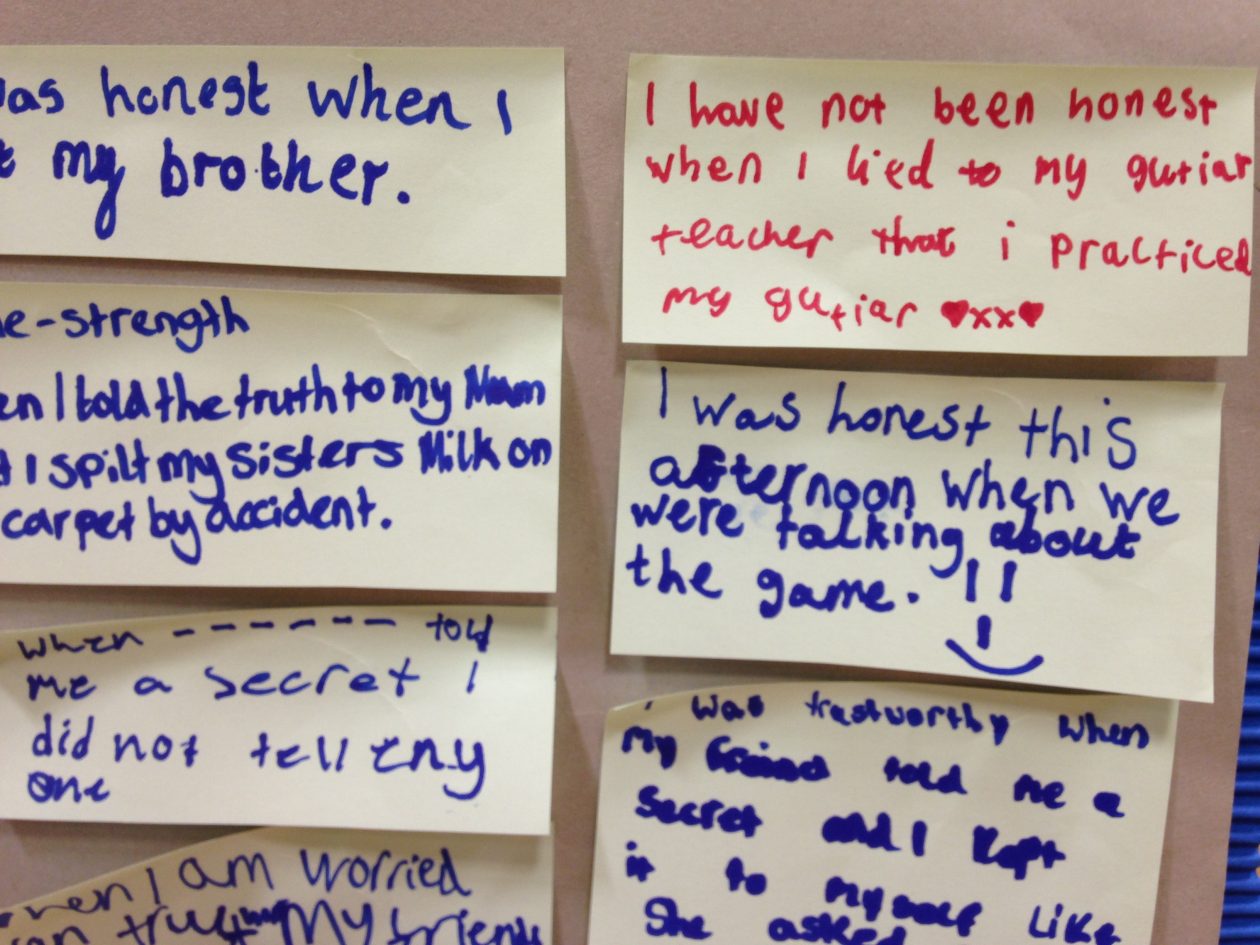 was honest when I
my brother.
e-strength
en I told the truth to my Mum
I spilt my sisters Milk on
carpet by accident.
when ------ told
me a secret I
did not tell eny
one
when I am worried
my friend
I have not been honest
when I lied to my gutiar
teacher that i practiced
my gutiar ♥xx♥
I was honest this
afternoon when we
were talking about
the game. !!
I was trastworthy when
my friend told me a
secret and I kept
it to myself like
She asked